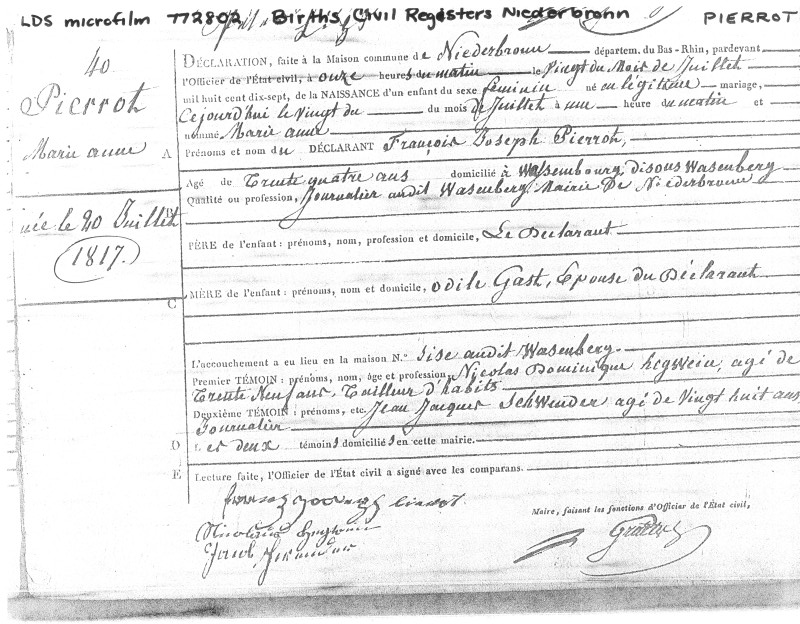 LDS microfilm 772802 Births, Civil Registers Niederbronn PIERROT
40
Pierrot
Marie anne
A
née le 20 Juillet
1817.
DÉCLARATION, faite à la Maison commune de Niederbronn départem. du Bas-Rhin, pardevant
l'Officier de l'État civil, à onze heures du matin le Vingt du Mois de Juillet
mil huit cent dix-sept, de la NAISSANCE d'un enfant du sexe feminin né en légitime mariage,
Cejourd'hui le Vingt du du mois de Juillet à une heure du matin et
nommé Marie anne
Prénoms et nom du DÉCLARANT François Joseph Pierrot,
Agé de Trente quatre ans domicilié à Wasembourg, disous Wasenberg
Qualité ou profession, Journalier audit Wasenberg, Mairie De Niederbronn
PÈRE de l'enfant: prénoms, nom, profession et domicile, Le Declarant
C
MÈRE de l'enfant: prénoms, nom et domicile, odile Gast, Epouse du Déclarant
L'accouchement a eu lieu en la maison N.° sise audit Wasenberg.
Premier TÉMOIN: prénoms, nom, âge et profession Nicolas Dominique hegwein, agé de
Trente Neuf ans, Tailleur d'habits
Deuxième TÉMOIN: prénoms, etc. Jean Jacques Schwender agé de Vingt huit ans,
Journalier
D
Les deux témoins domiciliés en cette mairie.
E
Lecture faite, l'Officier de l'État civil a signé avec les comparans.
Maire, faisant les fonctions d'Officier de l'État civil,